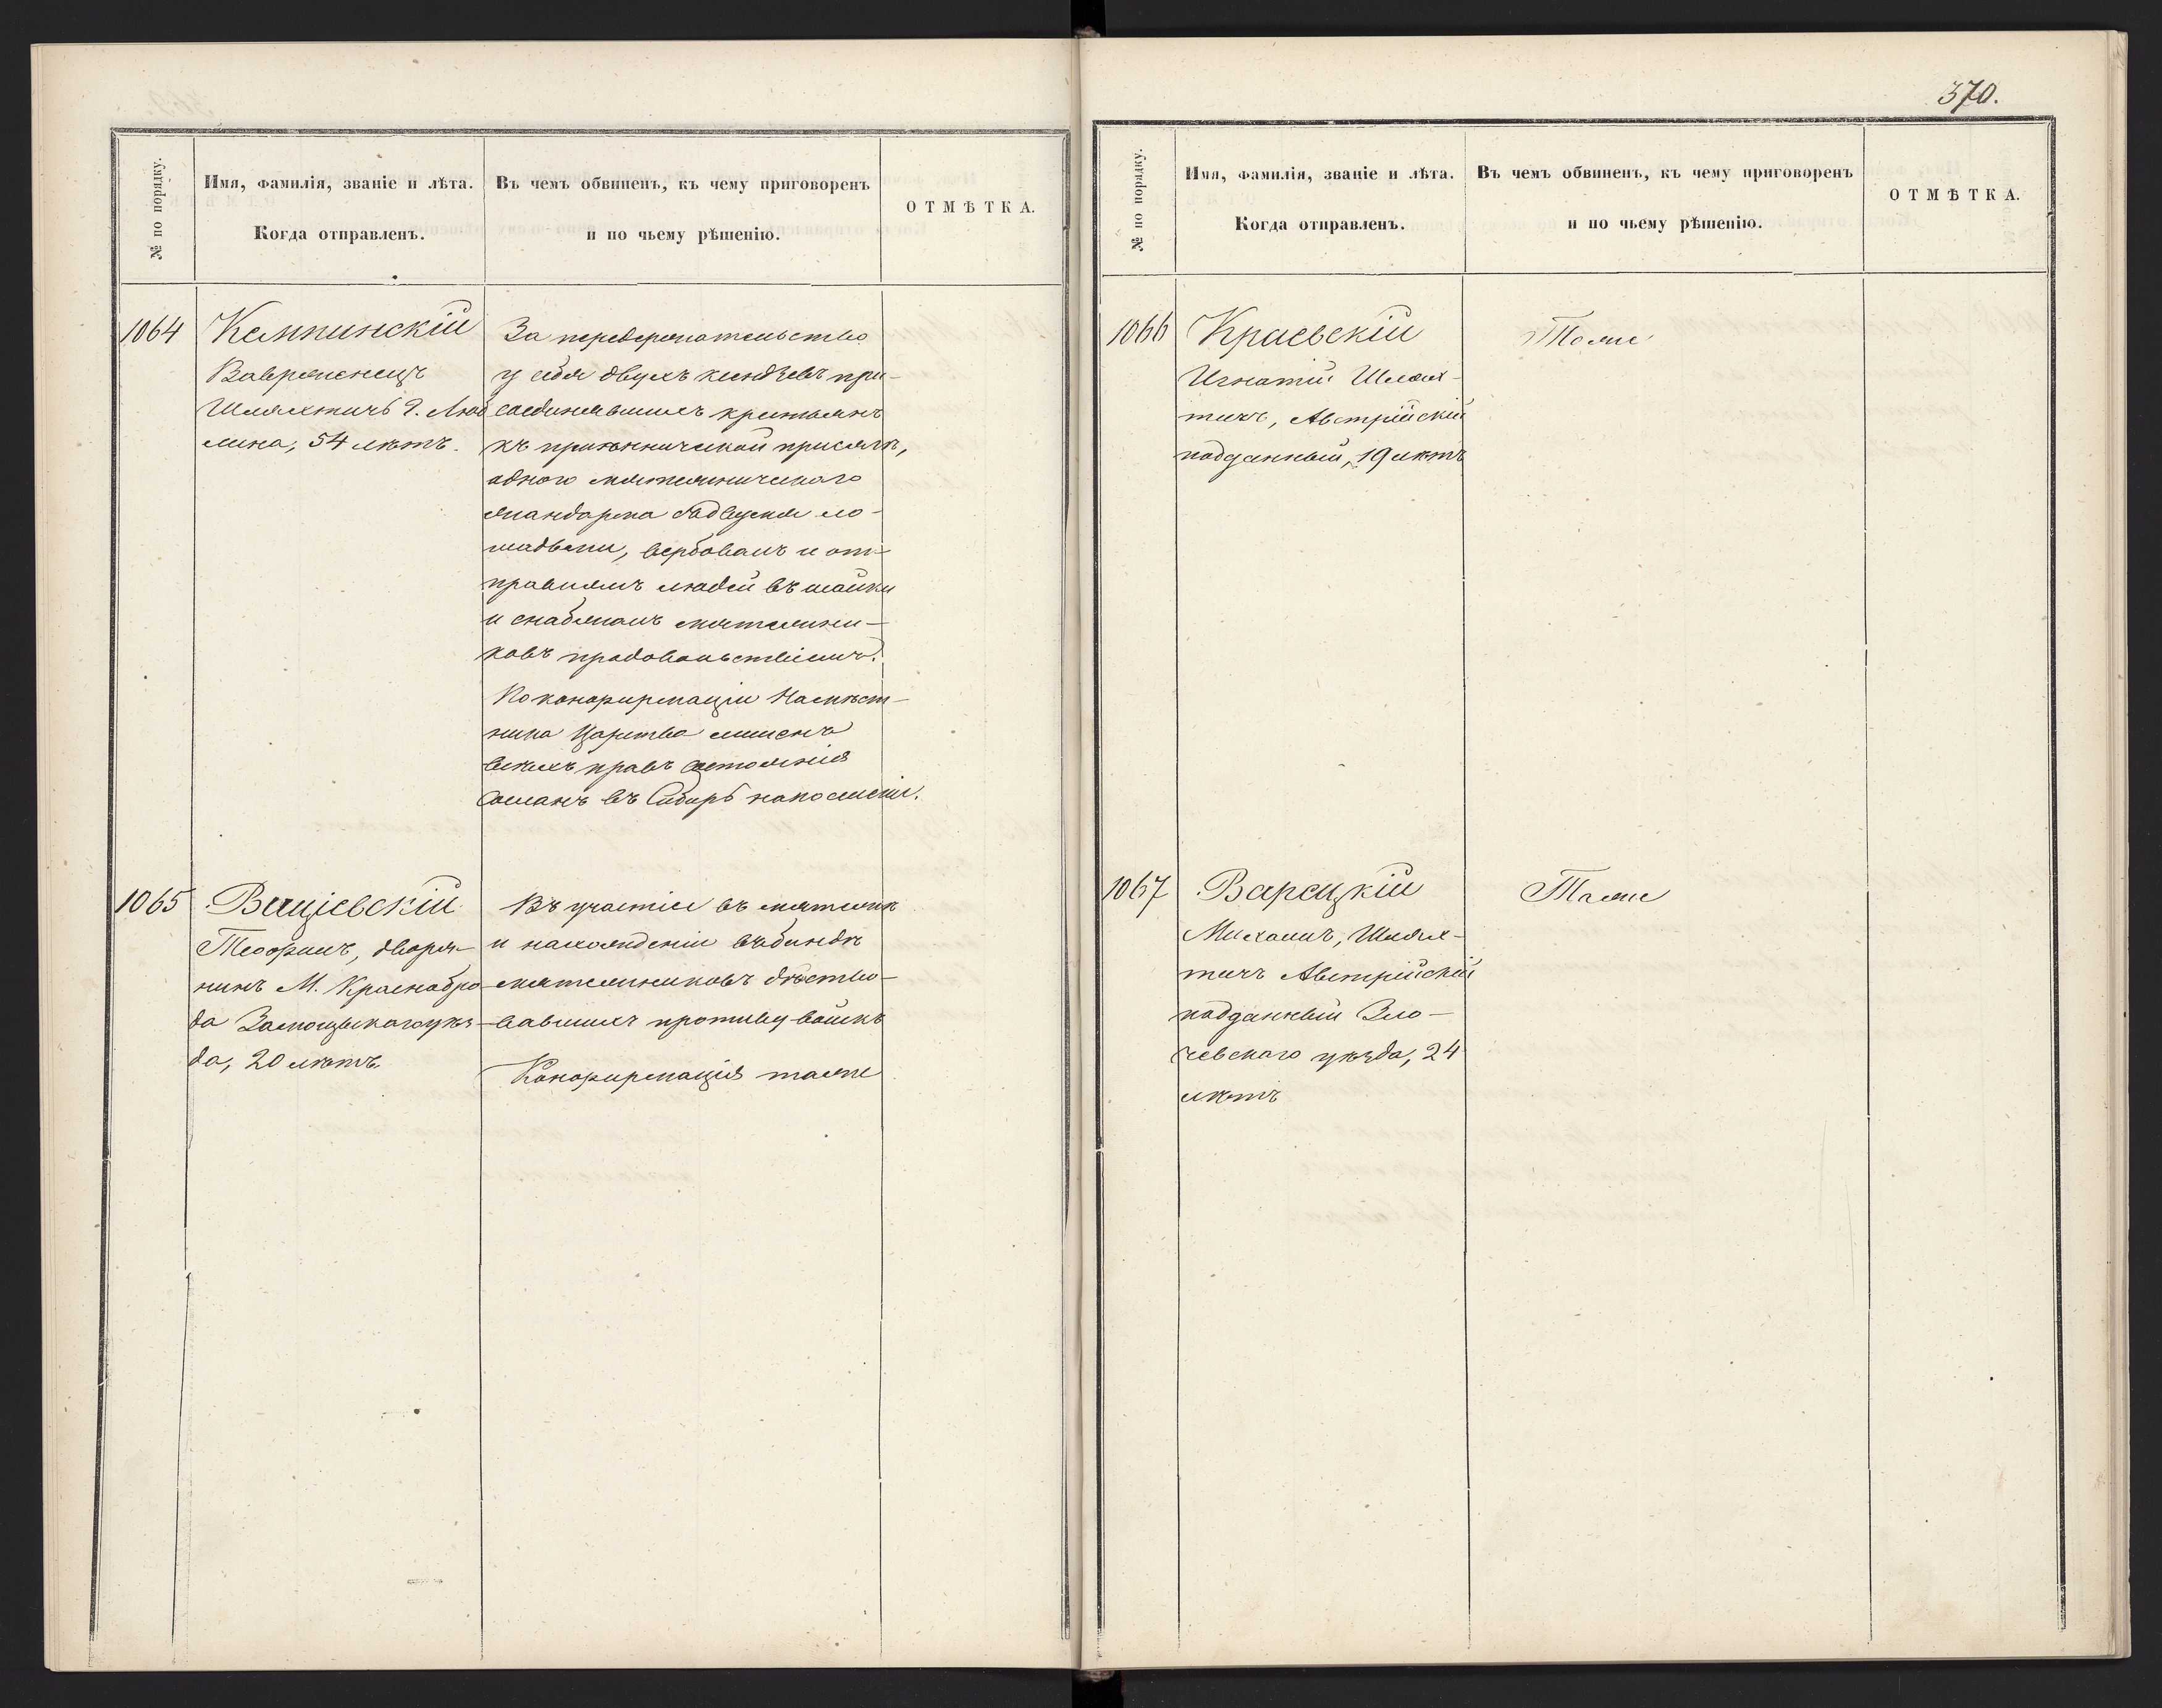 370.
№ по порядку.
Имя, Фамилія, званіе и лѣта.
Когда отправленъ.
Въ чемъ обвиненъ, къ чему приговоренъ
и по чьему рѣшенію.
ОТМѢТКА.
1064
Кемпинскій
Вавржинецъ
Шляхтичъ г. Люб
лина, 54 лѣтъ.
За передержательство
у себя двухъ ксендзевъ при-
соединявшихъ крестьянъ
къ присягѣ,
одного мятежническаго
жандарма съ двумя ло-
шадьми, вербовалъ и от-
правлялъ людей въ шайки
и снабжалъ мятежни-
ковъ продовольствіемъ.
По конфирмаціи Намѣст-
ника Царства лишенъ
всехъ правъ состоянія
сосланъ въ Сибирь на поселеніе.
1065
Вацiевскій
Теофилъ, дворя-
нинъ М. Краснобро
да Замосцьскаго уѣз-
да, 20 лѣтъ
Въ участіи въ мятежѣ
и нахожденіи въ бандѣ
мятежниковъ дѣйство-
вавшихъ противу войскъ
Конфирмація таже
№ по порядку.
Имя, Фамилія, званіе и лѣта.
Когда отправленъ.
Въ чемъ обвиненъ, къ чему приговоренъ
и по чьему рѣшенію.
ОТМѢТКА.
1066
Краевскій
Игнатій Шлях-
тичъ, Австрійскій
подданный, 19 лѣтъ
Тоже
1067
Варецкій
Михаилъ, Шлях-
тичъ Австрійскій
подданный Зло-
чевскаго уѣзда, 24
лѣтъ
Тоже